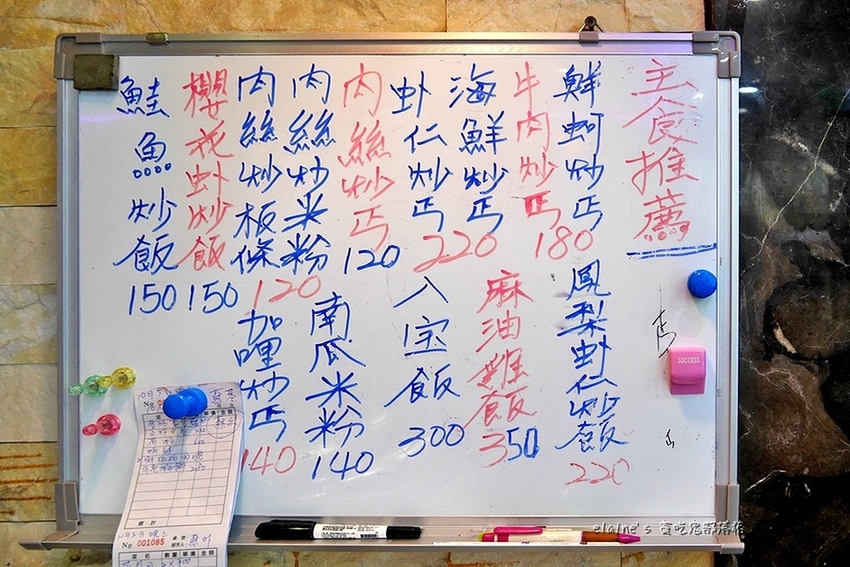 主食推薦
鮮蚵炒丐
牛肉炒丐
180
海鮮炒丐
虾仁炒丐
220
肉絲炒丐
120
肉絲炒米粉
肉絲炒板條
120
櫻花虾炒飯
150
鮭魚炒飯
150
鳳梨虾仁炒飯
220
麻油雞飯
350
八宝飯
300
南瓜米粉
140
咖哩炒丐
140
丐
SUCCESS
No 001085
elaine's 貪吃鬼部落格